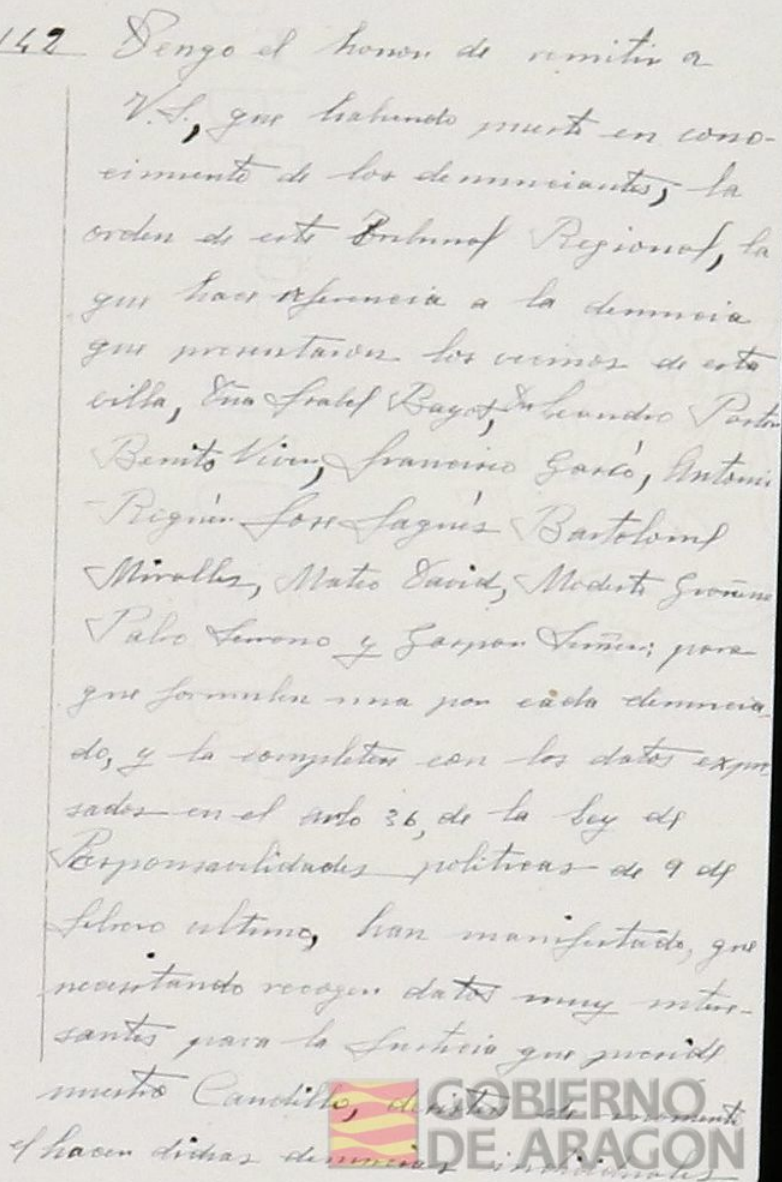 142 Tengo el honor de remitir a
V.S., que habiendo puesto en cono-
cimiento de los denunciantes, la
orden de este Tribunal Regional, la
que hace referencia a la denuncia
que presentaron los vecinos de esta
villa, Dña Isabel Bayot, Dn Leandro Pastor
Benito Viver, Francisco Garcó, Antoni
Reguér Jose Sagués Bartolomé
Miralles, Mateo David, Modesto
Pablo Serrano y Gaspar para
que formulen una por cada denuncia-
do, y la completen con los datos expre
sados en el artlo 36, de la Ley de
Responsavilidades politicas de 9 de
febrero ultimo, han manifestado, que
necesitando recoger datos muy intere-
santes para la Justicia que preside
nuestro Caudillo, desisten de momento
el hacer dichas denuncias individuales
GOBIERNO
DE ARAGON